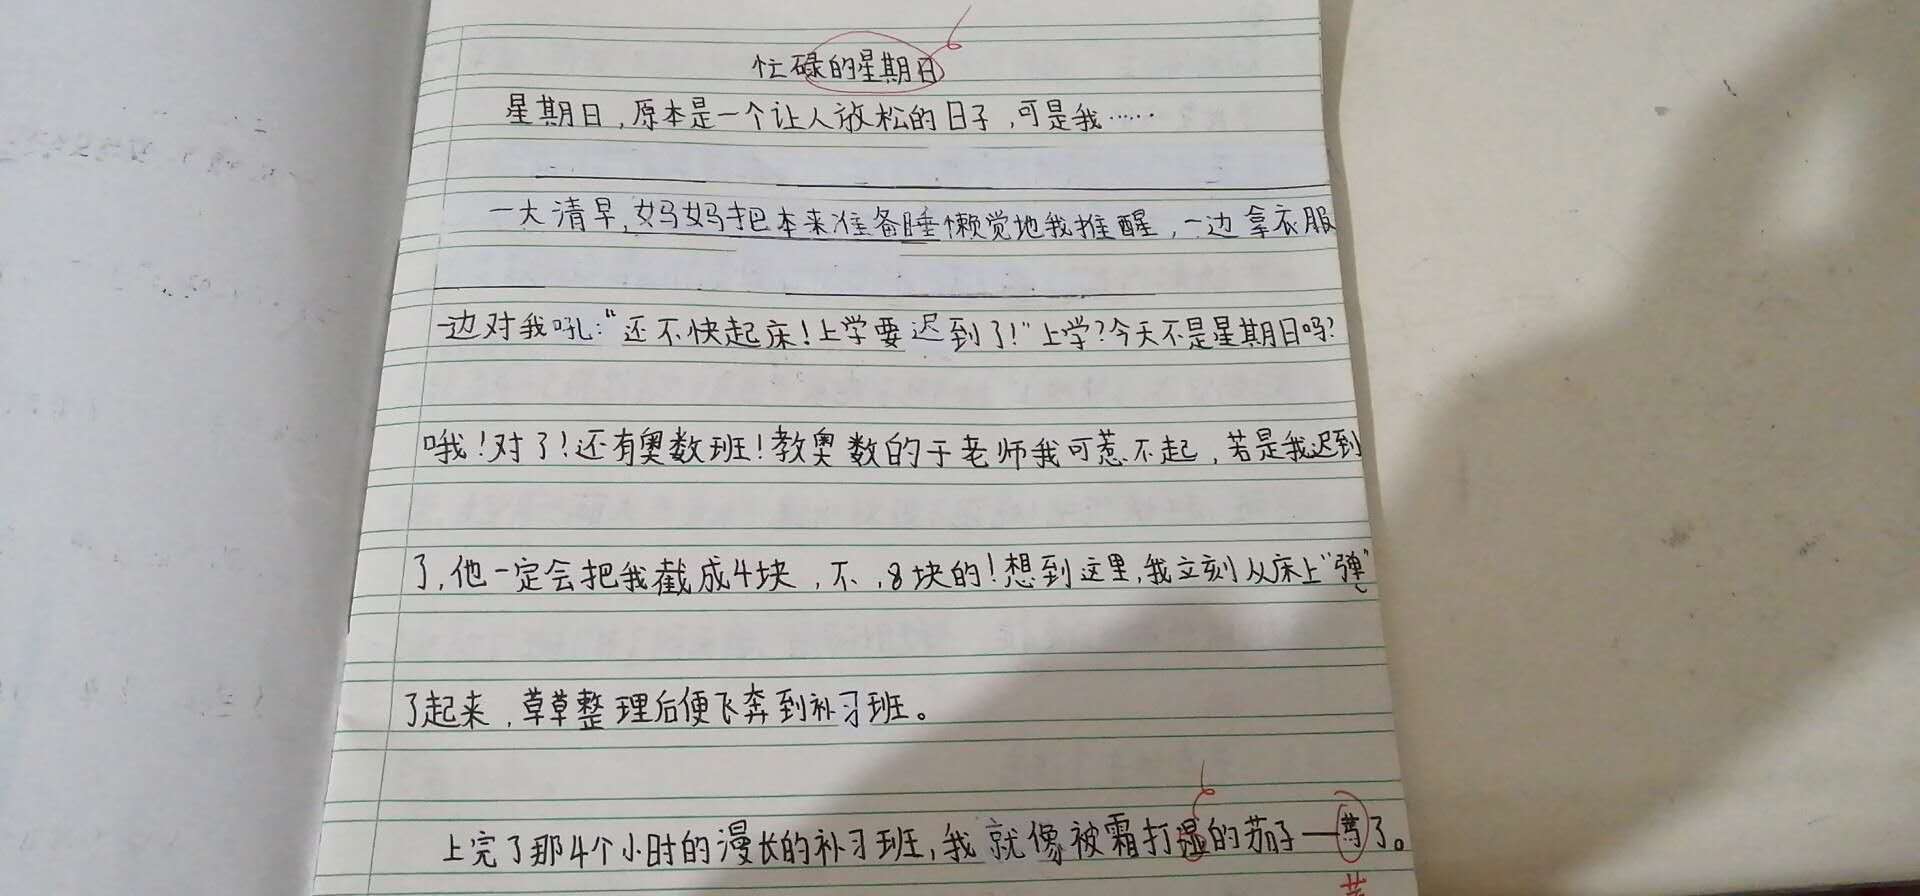 忙碌的星期日
星期日，原本是一个让人放松的日子，可是我……
一大清早，妈妈把本来准备睡懒觉地我推醒，一边拿衣服
一边对我吼：“还不快起床！上学要迟到了！”上学？今天不是星期日吗？
哦！对了！还有奥数班！教奥数的于老师我可惹不起，若是我迟到
了，他一定会把我截成4块，不，8块的！想到这里，我立刻从床上“弹”
了起来，草草整理后便飞奔到补习班。
上完了那4个小时的漫长的补习班，我就像被霜打湿的茄子—了。